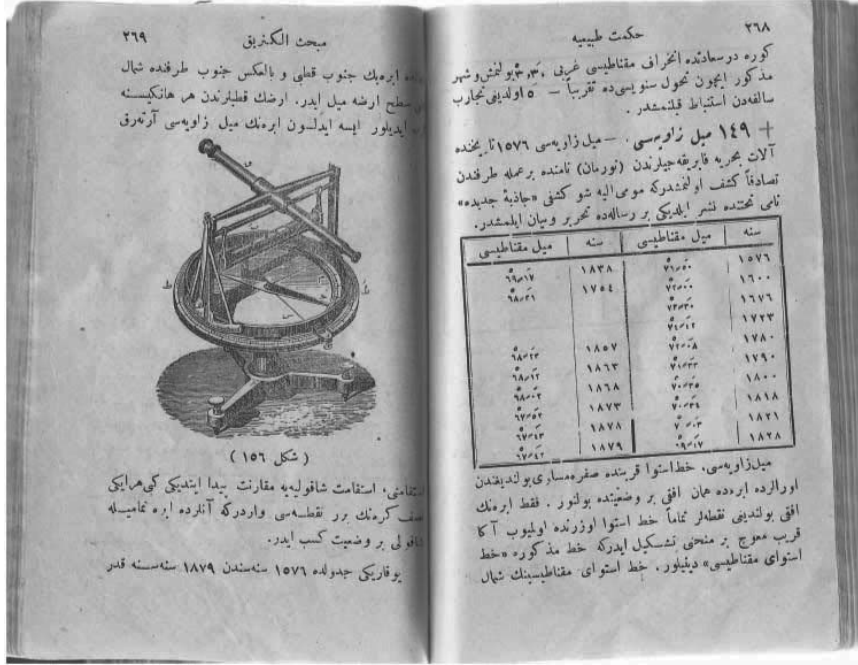 ٢٦٨
حكمت طبيعيه
كوره درسعادتده انحراف مقناطيسى غربى ٣ْ,٣َ بولنمش و شهر
مذكور ايچون تحول سنويسى ده تقريباً — ٥ اولديغى تجارب
سالفه‌دن استنباط قيلنمشدر.
+ ١٤٩ ميل زاويه‌سى. — ميل زاويه‌سى ١٥٧٦ تاريخنده
آلات بحريه فابريقه‌جيلرندن (نورمان) نامنده بر عمله طرفندن
تصادفاً كشف اولنمشدركه مومى اليه شو كشفى «جاذبۀ جديده»
نامى تحتنده نشر ايلديكى بر رساله‌ده تحرير و بيان ايلمشدر.
سنه | ميل مقناطيسى | سنه | ميل مقناطيسى
١٥٧٦ ٧١ْ٫٥٠َ ١٨٣٨ ٦٩ْ٫١٧َ
١٦٠٠ ٧٢ْ٫٠٠َ ١٧٥٤ ٦٨ْ٫٣١َ
١٦٧٦ ٧٣ْ٫٣٠َ
١٧٢٣ ٧٤ْ٫٤٢َ
١٧٨٠ ٧٢ْ٫٠٨َ ١٨٥٧ ٦٨ْ٫٢٣َ
١٧٩٠ ٧١ْ٫٣٣َ ١٨٦٣ ٦٨ْ٫١٢َ
١٨٠٠ ٧٠ْ٫٣٥َ ١٨٦٨ ٦٨ْ٫٠٢َ
١٨١٨ ٧٠ْ٫٣٤َ ١٨٧٣ ٦٧ْ٫٥٢َ
١٨٢١ ٧٠ْ٫٠٣َ ١٨٧٨ ٦٧ْ٫٤٣َ
١٨٢٨ ١٨٧٩ ٦٧ْ٫٤٢َ
ميل زاويه‌سى، خط استوا قربنده صفره مساوى بولنديغندن
اورالرده ابره‌ده همان افقى بر وضعيتده بولنور. فقط ابره‌نك
افقى بولنديغى نقطه‌لر تماماً خط استوا اوزرنده اولميوب آكا
قريب معوج بر منحنى تشكيل ايدركه خط مذكوره «خط
استواى مقناطيسى» دينيلور. خط استواى مقناطيسينك شمال
مبحث الكتريق
٢٦٩
ابره‌نك جنوب قطبى و بالعكس جنوب طرفنده شمال
سطح ارضه ميل ايدر. ارضك قطبلرندن هر هانكيسنه
ايديلور ايسه ايدلسون ابره‌نك ميل زاويه‌سى آرته‌رق
(شكل ١٥٦)
استقامتى، استقامت شاقوليه‌يه مقارنت پيدا ايتديكى كى هر ايكى
نصف كره‌نك برر نقطه‌سى واردركه آنلرده ابره تماميله
شاقولى بر وضعيت كسب ايدر.
يوقاريكى جدولده ١٥٧٦ سنه‌سندن ١٨٧٩ سنه‌سنه قدر